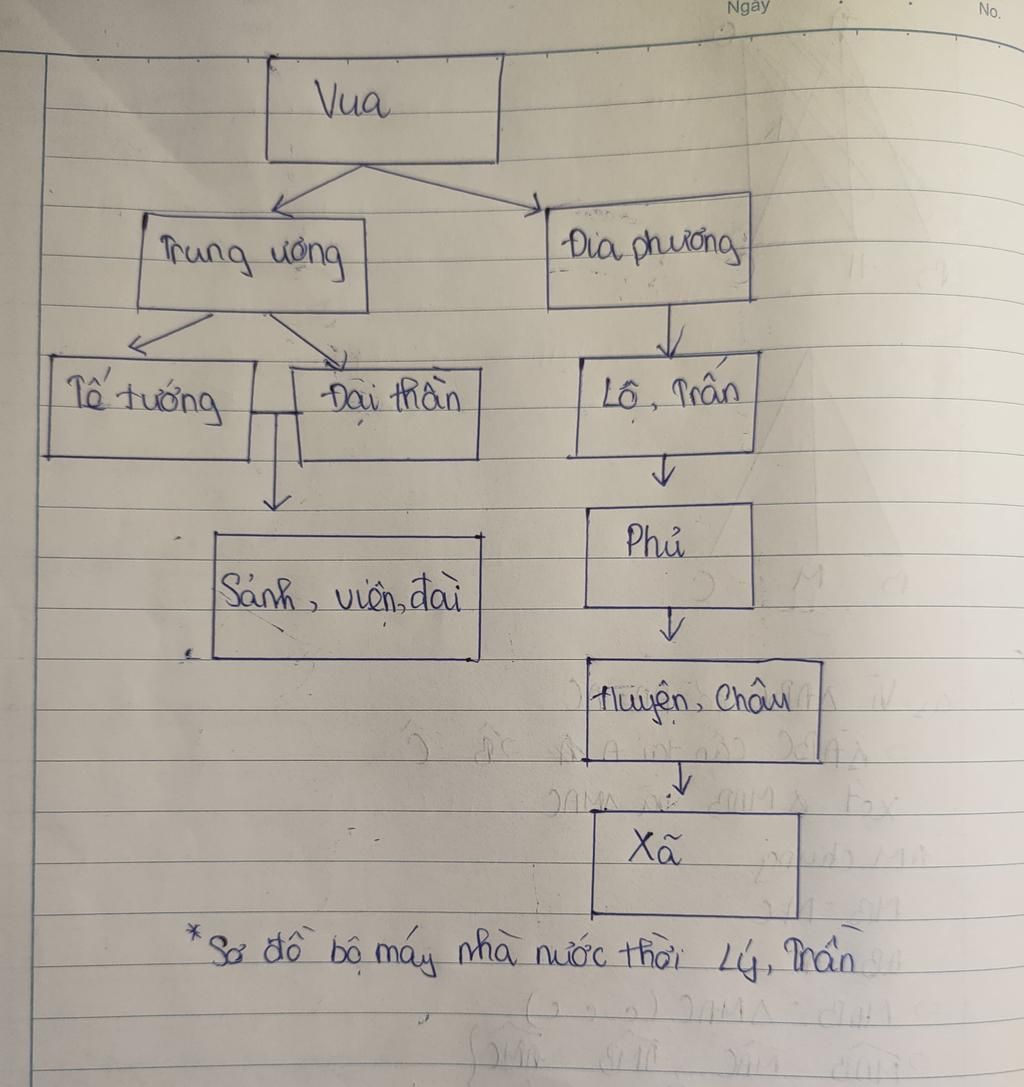 Ngày
No.
Vua
Trung ương
Địa phương
Tế tướng
Đại thần
Lộ, Trấn
Sảnh, viện, đài
Phủ
Huyện, Châu
Xã
*Sơ đồ bộ máy nhà nước thời Lý, Trần